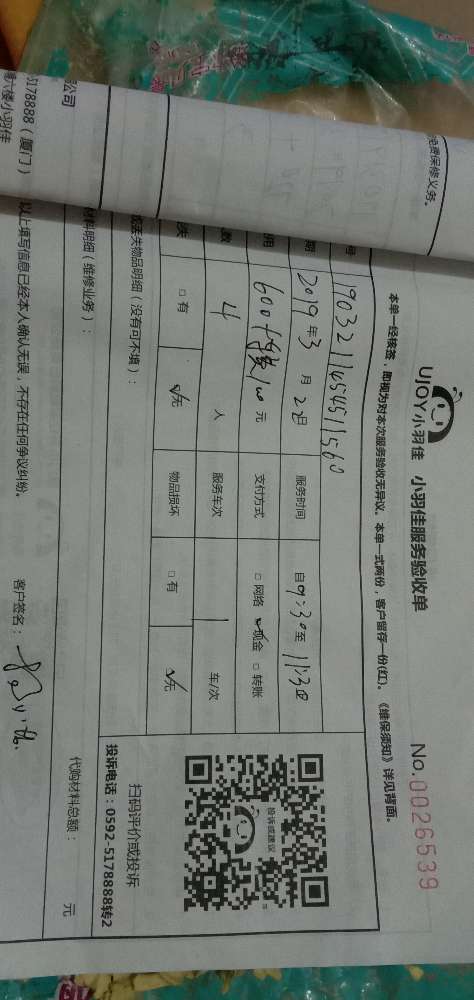 免费保修义务。
UJOY小羽佳 小羽佳服务验收单
No.0026539
本单一经核签，即视为对本次服务验收无异议。本单一式两份，客户留存一份(红)。《维保须知》详见背面。
号 190321145451560
期 2019年3月22日 服务时间 自9:30至11:30
用 600 100元 支付方式 □网络 ☑现金 □转账
数 4 人 服务车次 1 车/次
失 □有 ☑无 物品损坏 □有 ☑无
投诉或建议
扫码评价或投诉
投诉电话：0592-5178888转2
或丢失物品明细（没有可不填）：
材料明细（维修业务）：
代购材料总额： 元
以上填写信息已经本人确认无误，不存在任何争议纠纷。 客户签名：
公司
5178888（厦门）
六楼小羽佳